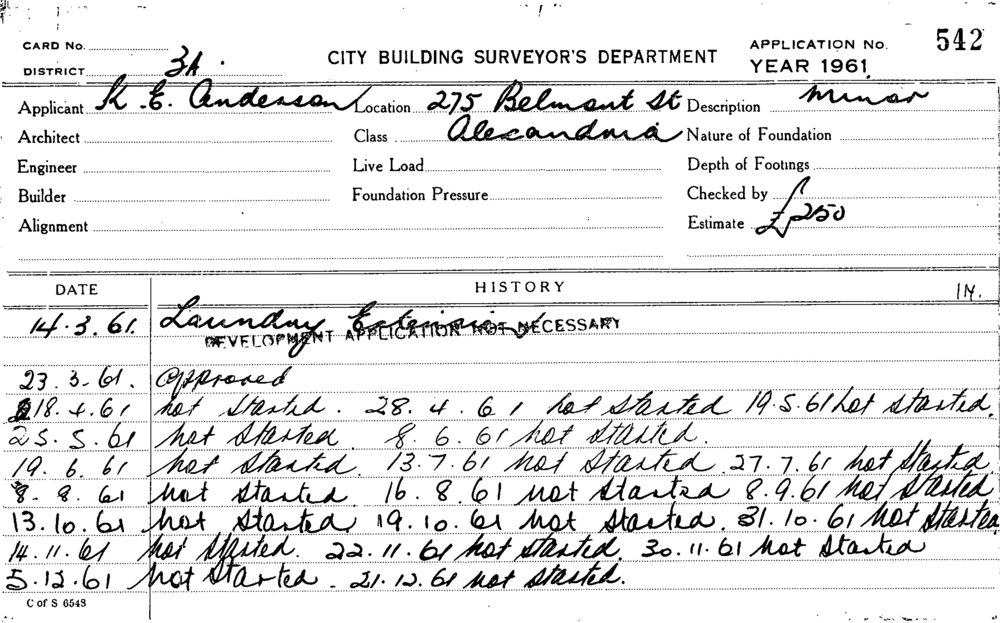 CARD No. CITY BUILDING SURVEYOR'S DEPARTMENT APPLICATION No. 542
DISTRICT 3A. YEAR 1961
Applicant K. E. Anderson Location 275 Belmont St Description Minor
Architect Class Alexandria Nature of Foundation
Engineer Live Load Depth of Footings
Builder Foundation Pressure Checked by
Alignment Estimate £250
DATE HISTORY
14.3.61. Laundry Extension
DEVELOPMENT APPLICATION NOT NECESSARY
23.3.61. Approved
18.4.61 not started. 28.4.61 not started 19.5.61 not started.
25.5.61 not started. 8.6.61 not started.
19.6.61 not started. 13.7.61 not started. 27.7.61 not started
8.8.61 not started 16.8.61 not started 8.9.61 not started
13.10.61 not started 19.10.61 not started. 31.10.61 not started
14.11.61 not started. 22.11.61 not started. 30.11.61 not started
5.12.61 not started. 21.12.61 not started.
C of S 6548